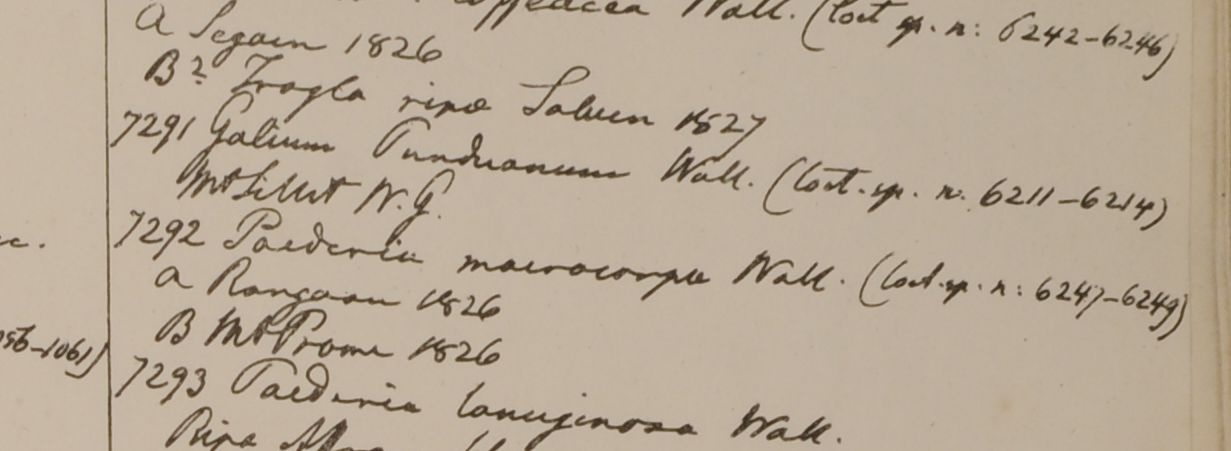 Wall. (Cat. sp. n: 6242-6246)
a Segain 1826
B? Trogla ripa Saluen 1827
7291 Galium Punduanum Wall. (Cat. sp. n: 6211-6214)
Mt Sillet W.G.
7292 Paederia macrocarpa Wall. (Cat. sp. n: 6247-6249)
a Rangoon 1826
B Mt Prome 1826
7293 Paederia lanuginosa Wall.
Ripa
-1061)